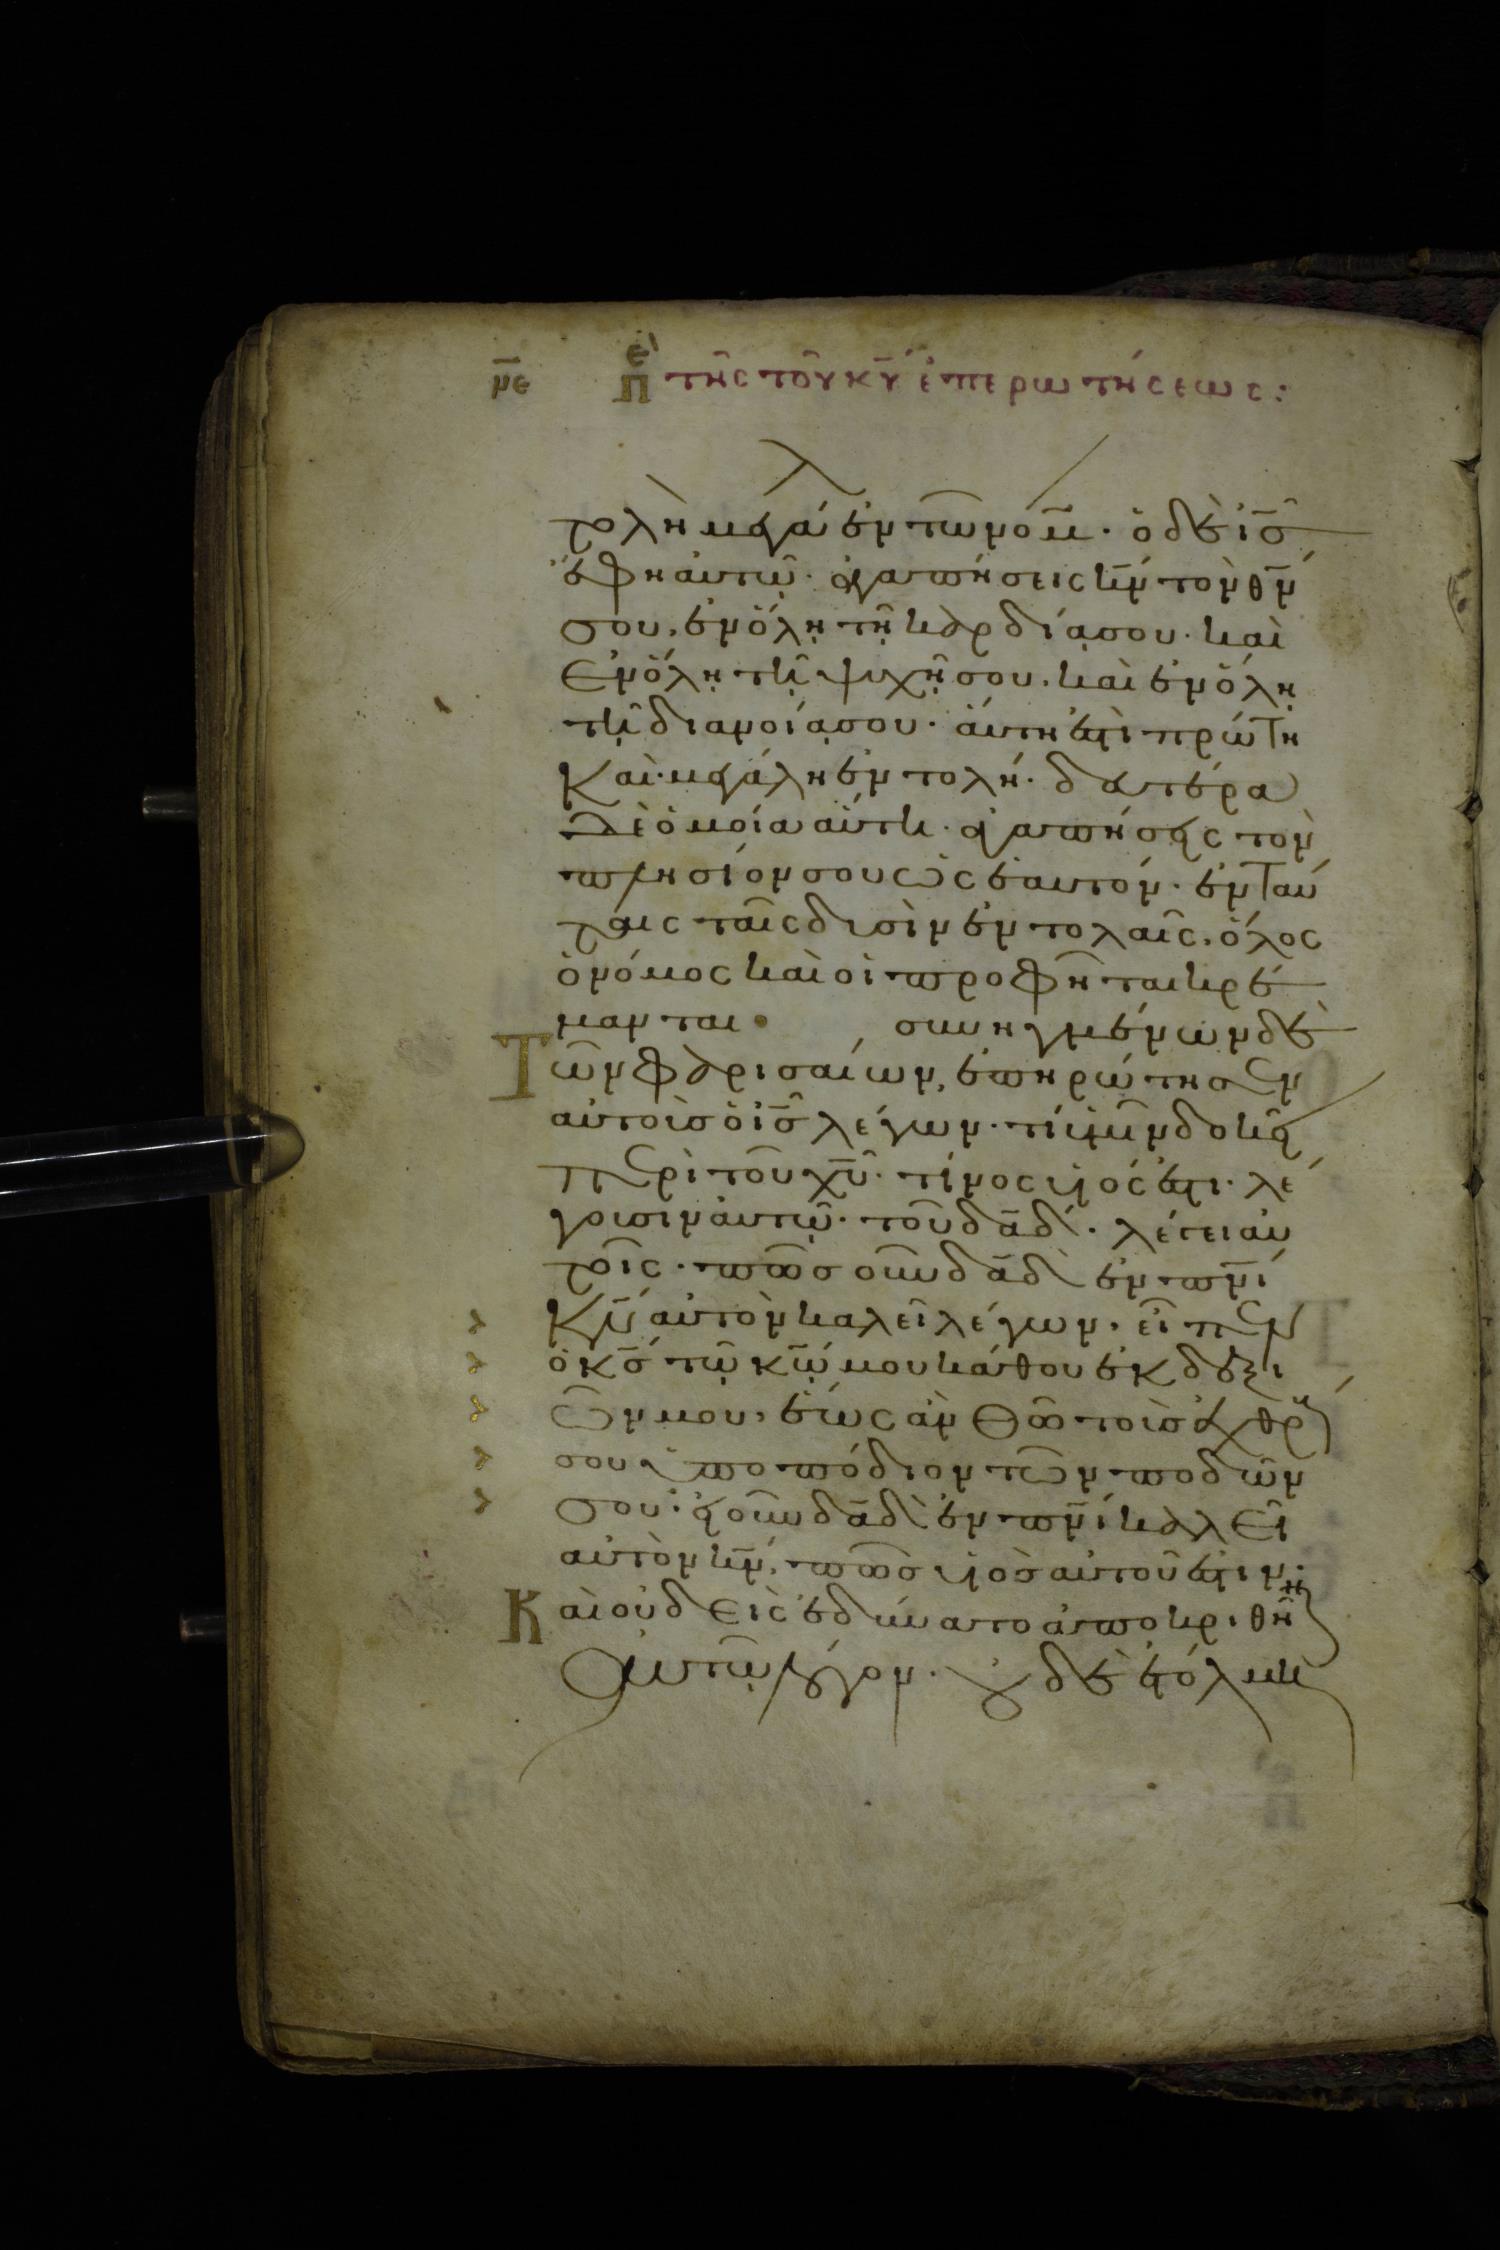 νε πε τῆς τοῦ κυ ἐπερωτήσεως:
τολὴ μεγάλη ἐν τῶ νόμω. ὁ δὲ ισ
ἔφη αὐτῷ. ἀγαπήσεις κν τὸν θν
σου. ἐν ὅλῃ τῇ καρδίᾳ σου. καὶ
ἐν ὅλῃ τῇ ψυχῇ σου. καὶ ἐν ὅλῃ
τῇ διανοίᾳ σου. αὕτη ἐστὶ πρώτη
καὶ μεγάλη ἐντολή. δευτέρα
δὲ ὁμοία αὐτῆ. ἀγαπήσεις τὸν
πλησίον σου ὡς ἑαυτόν. ἐν ταύ
ταις ταῖς δυσὶν ἐντολαῖς. ὅλος
ὁ νόμος καὶ οἱ προφῆται κρέ
μανται. συνηγμένων δὲ
Τῶν φαρισαίων, ἐπηρώτησεν
αὐτοὺς ὁ ισ λέγων. τί ὑμῖν δοκεῖ
περὶ τοῦ χυ. τίνος υἱός ἐστι. λέ
γουσιν αὐτῷ. τοῦ δαδ. λέγει αὐ
τοῖς. πῶς οὖν δαδ ἐν πνι
κν αὐτὸν καλεῖ λέγων. εἶπεν
ὁ κσ τῷ κῳ μου κάθου ἐκ δεξι
ῶν μου, ἕως ἂν θῶ τοὺς ἐχθρούς
σου ὑποπόδιον τῶν ποδῶν
σου. εἰ οὖν δαδ ἐν πνι καλεῖ
αὐτὸν κν, πῶς υἱὸς αὐτοῦ ἐστιν.
Καὶ οὐδεὶς ἐδύνατο ἀποκριθῆναι
αὐτῷ λόγον. οὐδὲ ἐτόλμη